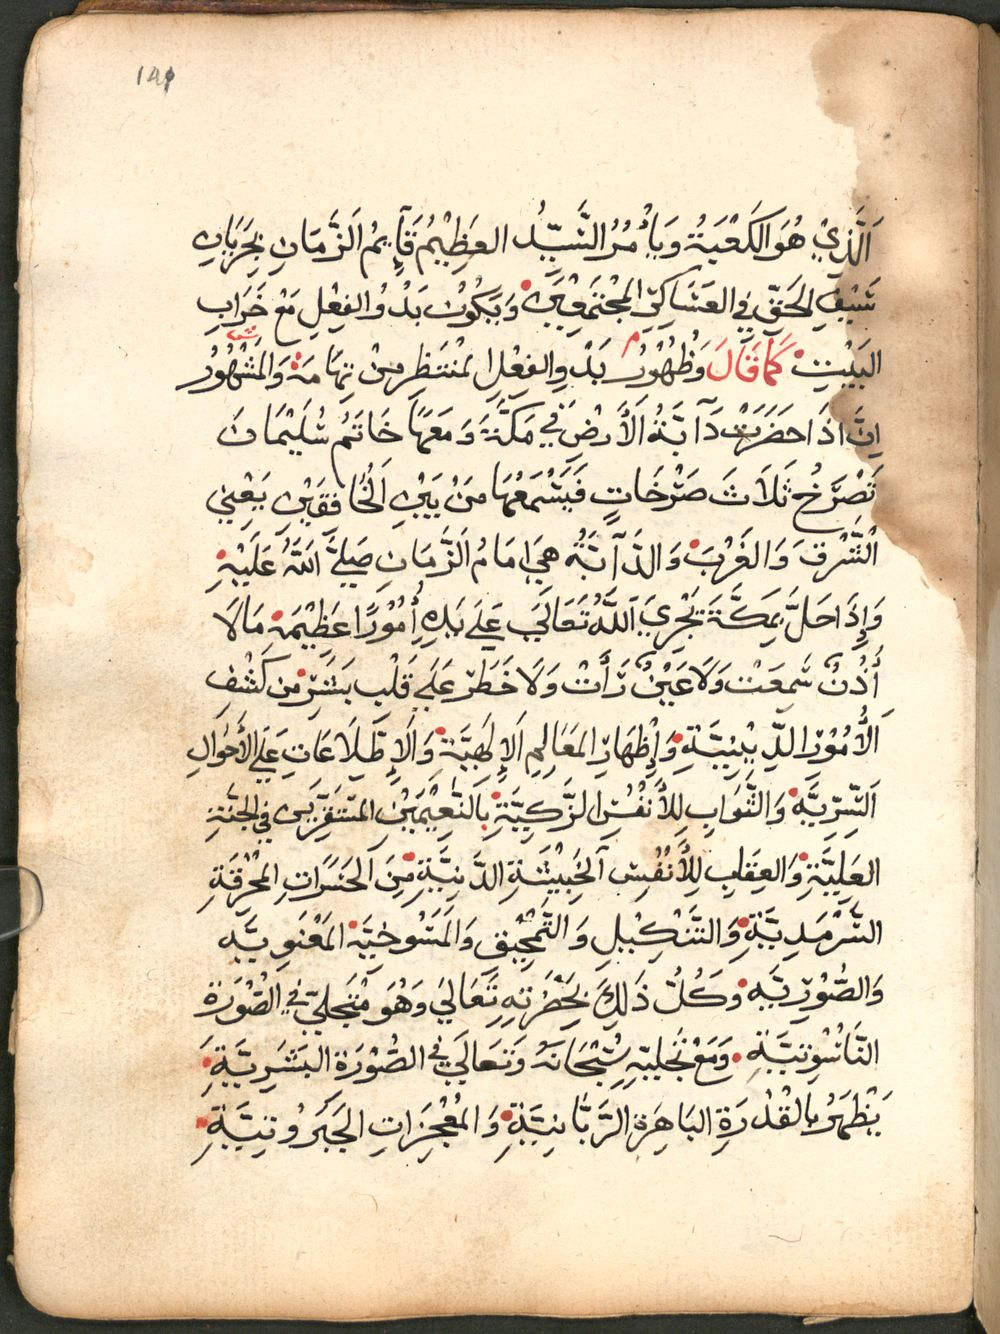 ١٨٩
اَلَّذِيْ هُوَ الكَعْبَةُ وَيَأْمُرُ السَّيِّدُ العَظِيْمُ قَآيِمُ الزَّمَانِ بِجَرَيَانِ
سَيْفِ الحَقِّ فِي العَسَاكِرِ المُجْتَمِعِيْنَ وَيَكُوْنُ بَدْوُ الفِعْلِ مَعْ خَرَابِ
البَيْتِ كَمَا قَالَ وَظُهُوْرُ بَدْوِ الفِعْلِ لِمُنْتَظِرِ مِنْ تِهَامَهْ وَالمَشْهُوْرُ
اِنَّ اِذَا حَضَرَتْ دَآبَّةُ الأَرْضِ فِيْ مَكَّةَ وَمَعَهَا خَاتَمُ سُلَيْمَانَ
تَصْرَخُ ثَلَاثَ صَرْخَاتٍ فَيَسْمَعُهَا مَنْ بَيْنِ اَلْخَافِقَيْنِ يَعْنِيْ
الْشَّرْقَ وَالغَرْبَ وَالدَّآبَّةُ هِيَ اِمَامُ الزَّمَانِ صَلَّىَ اللَّهُ عَلَيْهِ
وَإِذَا حَلَّ بِمَكَّةَ يُجْرِيَ اَللَّهُ تَعَالَىَ عَلَى يَدِهِ أُمُوْرًا عَظِيْمَةْ مَالَا
أُذُنٌ سَمِعَتْ وَلَا عَيْنٌ رَأَتْ وَلَا خَطَرْ عَلَى قَلْبِ بَشَرْ مِن كَشْفِ
اَلأُمُوْرِ الدِّيْنِيَّةِ وَإِظْهَارِ المَعَالِمِ اَلإِلَهِيَّةْ وَالإِطِّلَاعَاتِ عَلَى الأَحْوَالِ
السِّرِّيَّهْ وَالثَّوَابِ لِلأَنْفُسِ الزَّكِيَّةِ بِالنَّعِيْمَيْنِ المُسْتَقِرَّيْنِ فِي الجَنَّةِ
العَلِيَّةِ وَالعِقَابِ لِلأَنْفُسِ الخَبِيْثَةِ الدَّنِيَّةِ مِنَ اَلحَسَرَاتِ المُحْرِقَةِ
السَّرْمَدِيَّةِ وَالتَّنْكِيْلِ وَالتَّمْحِيْقِ وَالمَسْوخِيَّةِ المَعْنَوِيَّهِ
وَالصُّوْرِيَّهِ وَكُلُّ ذَلِكَ بِحَضْرَتِهِ تَعَالَى وَهُوَ مُتَجَلِّيْ فِي الصُّوْرَةِ
النَّاسُوْتِيَّةِ وَمَعْ تَجَلِّيْهِ سُبْحَانَهُ وَتَعَالَىَ فِي الصُّوْرَةِ البَشَرِيَّةِ
يَظْهَرُ بِالقُدْرَةِ البَاهِرَةِ الرَّبَّانِيَّةِ وَالمُعْجِزَاتِ الجَبَرُوتِيَّةِ